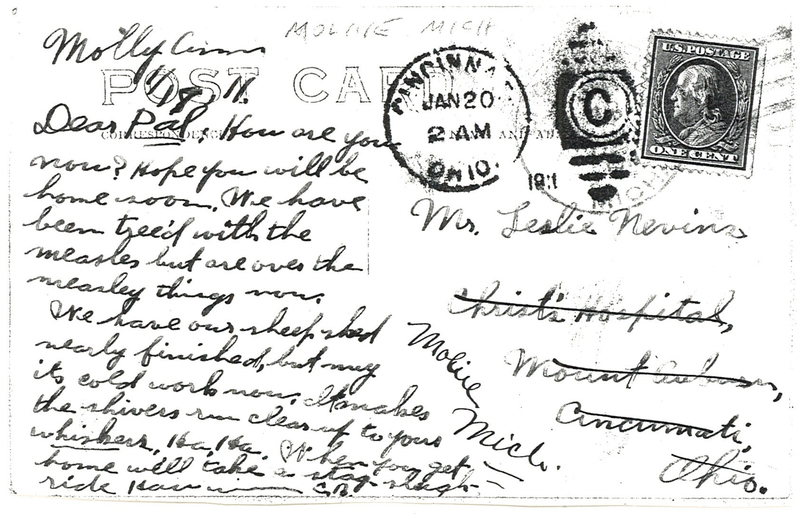 MOLINE MICH
POST CARD
CORRESPONDENCE
Dear Pal, How are you
now? Hope you will be
home soon. We have
been tree'd with the
measles but are over the
measley things now.
We have our sheep shed
nearly finished, but my
its cold work now, it makes
the shivers run clear up to your
whiskers, Ha, Ha. When you get
home we'll take a stag sleigh
ride
CINCINNATI
JAN 20
2 AM
OHIO.
1911
C
U.S. POSTAGE
ONE CENT
Mr. Leslie Nevins
Christ's Hospital,
Mount Auburn,
Cincinnati,
Ohio.
Moline
Mich.